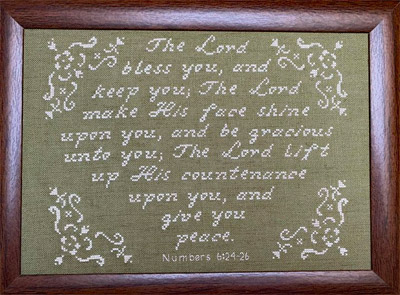 The Lord
bless you, and
keep you; The Lord
make His face shine
upon you, and be gracious
unto you; The Lord lift
up His countenance
upon you, and
give you
peace.
Numbers 6:24-26